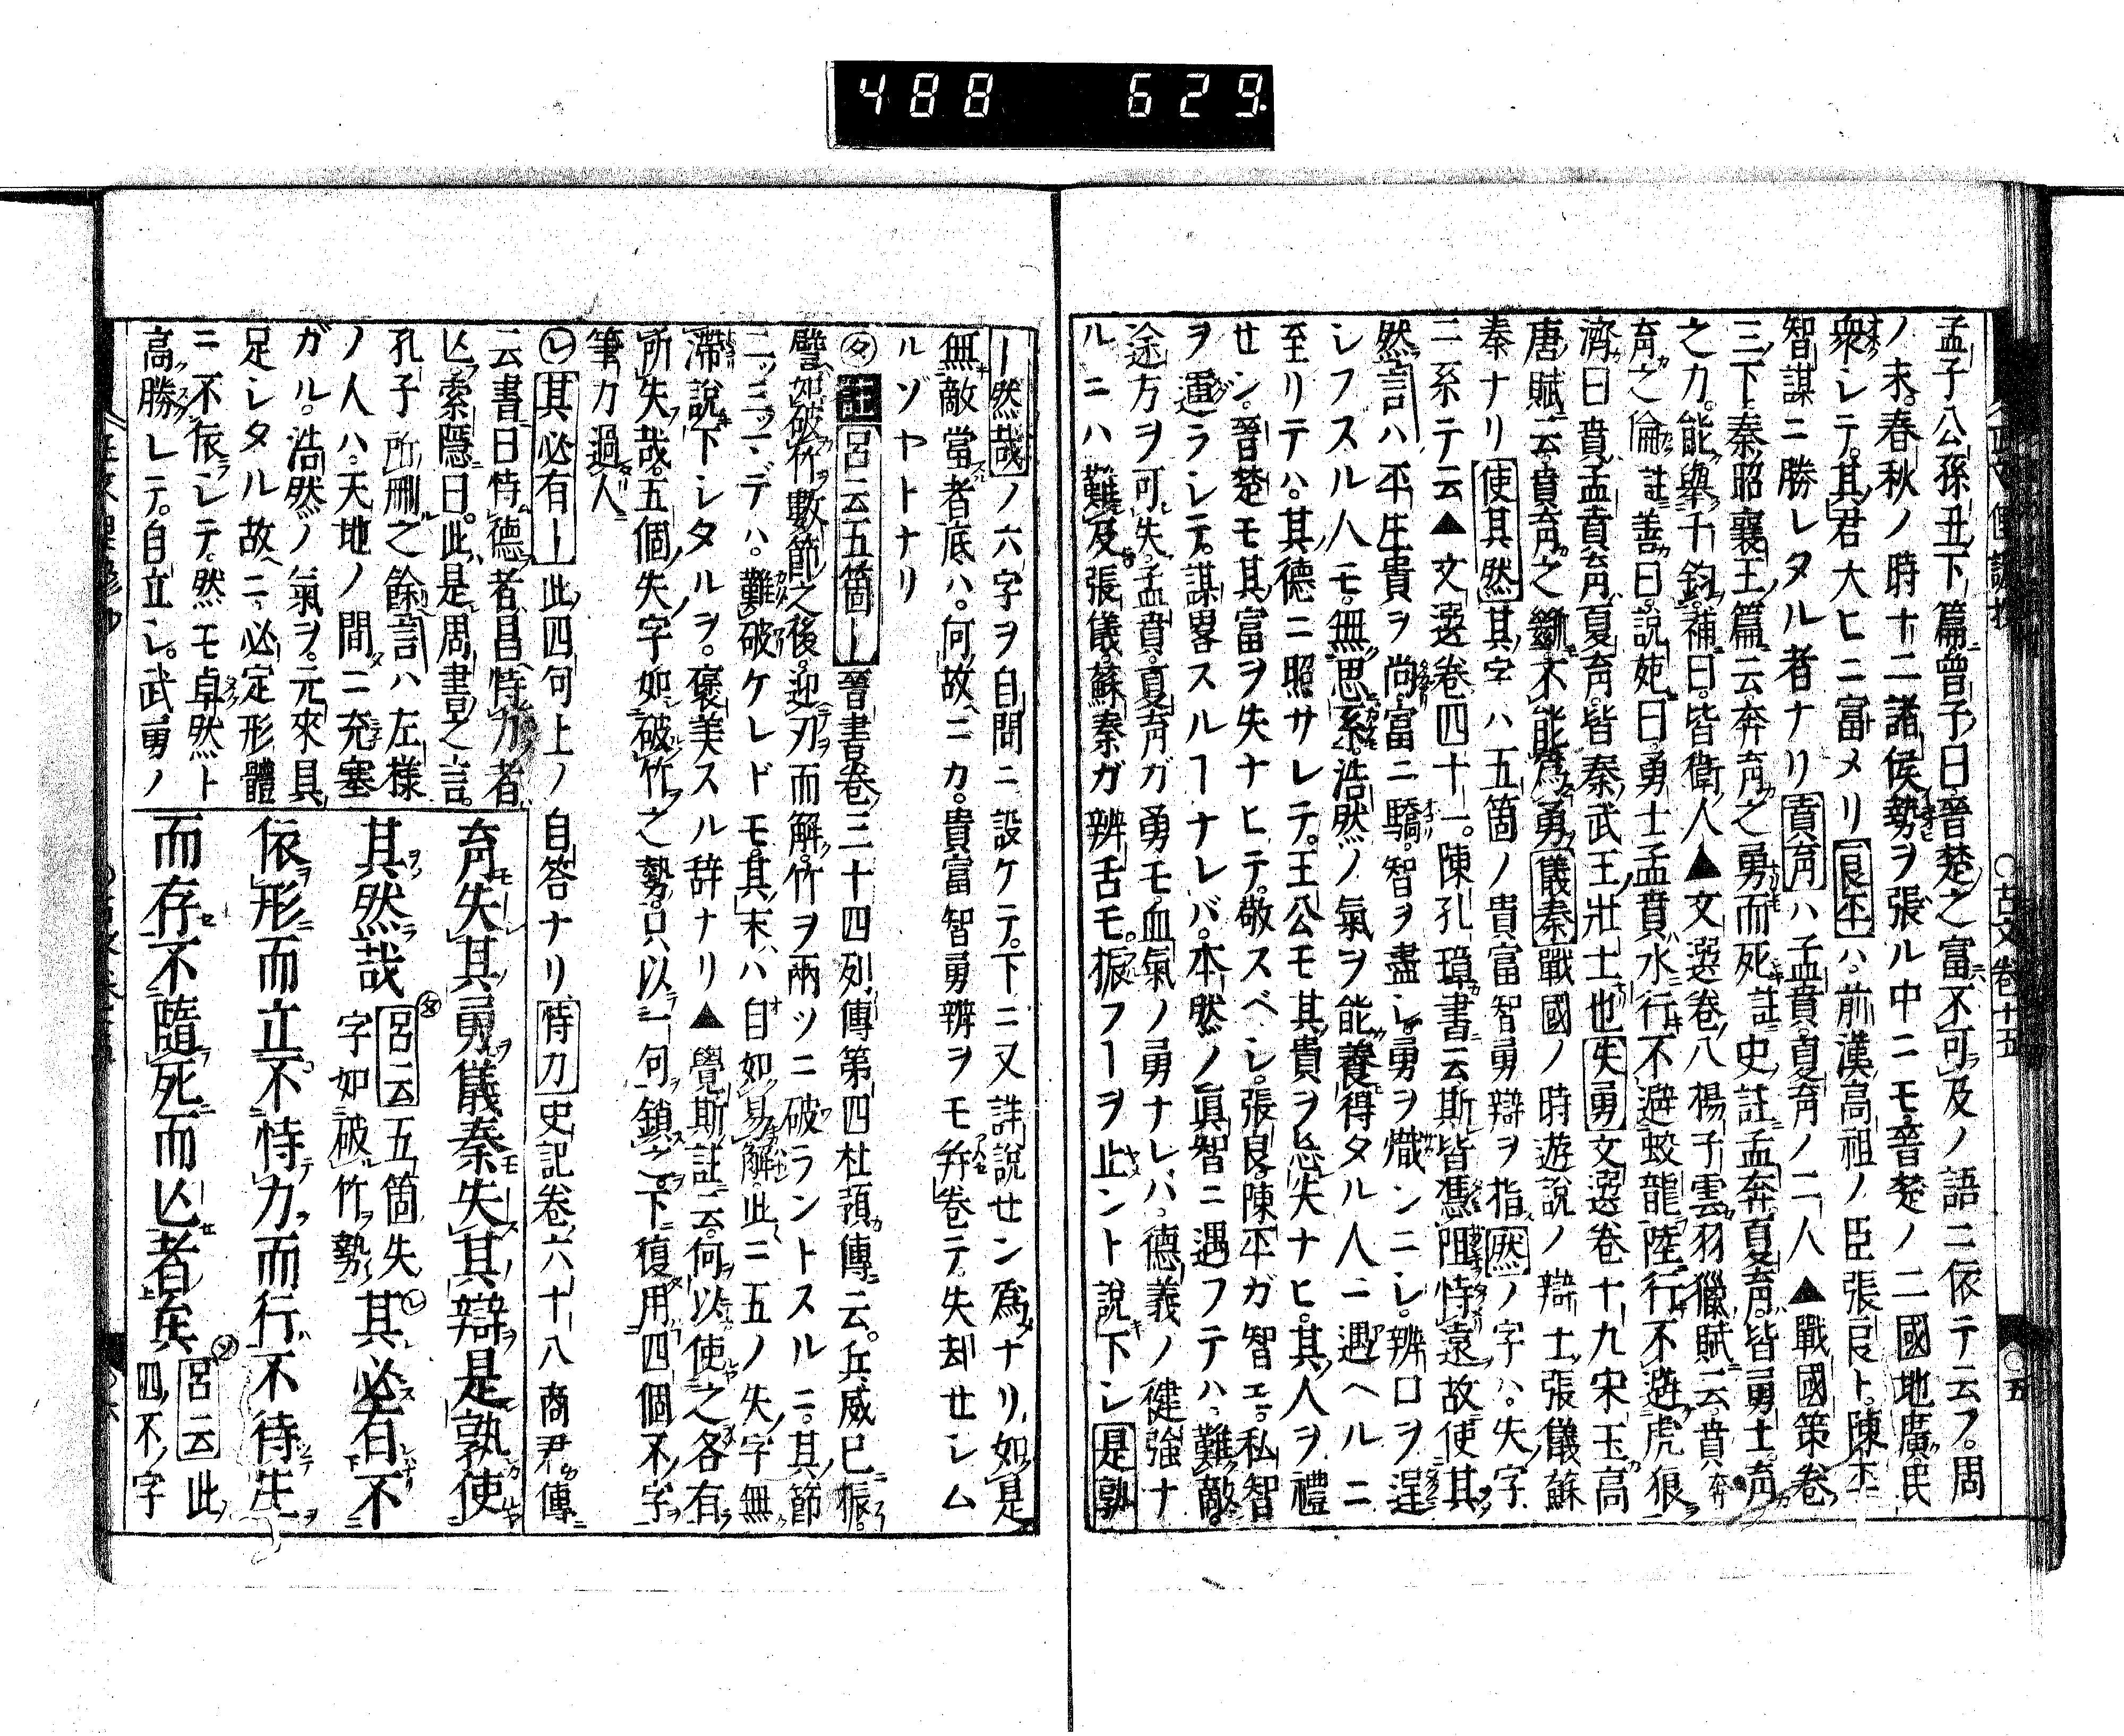 488 629.
孟子公孫丑下篇曾子曰晉楚之富不可及ノ語ニ依テ云フ。周
ノ末。春秋ノ時十二諸侯勢ヲ張ル中ニモ晉楚ノ二國地廣民
衆シテ。其君大ヒニ富メリ良平ハ前漢高祖ノ臣張良ト。陳平
智謀ニ勝レタル者ナリ賁育ハ孟賁。夏育ノ二人▲戰國策卷
三下秦昭襄王篇云奔育之勇而死註史註孟奔夏育。皆勇士。育
之力。能舉千鈞。補曰。皆衛人▲文選卷八楊子雲羽獵賦云賁
育之倫註善曰。說苑曰。勇士孟賁水行不避蛟龍陸行不避虎狼
濟曰賁孟賁育夏育。皆秦武王壯士也失勇文選卷十九宋玉高
唐賦云賁育之斷不能爲勇儀秦戰國ノ時遊說ノ辯士張儀蘇
秦ナリ使其然其字ハ五箇ノ貴富智勇辯ヲ指然ノ字ハ。失字
ニ系テ云▲文選卷四十一。陳孔璋書云斯皆憑阻恃遠故使其
然言ハ平生貴ヲ尚富ニ驕。智ヲ盡シ勇ヲ熾ンニシ。辨口ヲ逞
シフスル人モ。無思系浩然ノ氣ヲ能養得タル人ニ遇ヘルニ
至リテハ。其德ニ照サレテ。王公モ其貴ヲ忘失ナヒ。其人ヲ禮
セン。晉楚モ其富ヲ失ナヒテ。敬スベシ。張良陳平ガ智エ。私智
ヲ逥ラシテ。謀畧スルーナレバ。本然ノ眞智ニ遇フテハ。難敵。
途方ヲ可失。孟賁。夏育ガ勇モ。血氣ノ勇ナレバ。德義ノ健強ナ
ルニハ難及張儀。蘇秦ガ辨舌モ。振フーヲ止ント說下シ是孰
ー然哉ノ六字ヲ自問ニ設ケテ。下ニ又詳說セン爲ナリ如是
無敵當者底ハ。何故ニカ。貴富智勇辨ヲモ幷卷テ失却セシム
ルゾヤトナリ
タ註呂云五箇ー晉書卷三十四列傳第四杜預傳云。兵威已振。
譬如破竹數節之後。迎刃而解。竹ヲ兩ツニ破ラントスルニ。其節
二ッ三ッマデハ。難破ケレドモ。其末ハ自如易解此ニ五ノ失字無
滯說下シタルヲ。褒美スル辞ナリ▲覺斯註云。何以使之各有
所失哉。五個失字如破竹之勢。只以一句鎖之。下復用四個不字
筆力過人
レ其必有ー此四句上ノ自答ナリ恃力史記卷六十八商君傳
云書曰恃德者昌恃力者
亾。索隱曰。此是周書之言。
孔子所刪之餘言ハ左樣
ノ人ハ。天地ノ間ニ充塞
ガル。浩然ノ氣ヲ。元來具
足シタル故ニ。必定形體
ニ不依シテ。然モ卓然ト
高勝レテ。自立シ。武勇ノ
育失其勇儀秦失其辯是孰使
其然哉タ呂云五箇失字如破竹勢レ其必有不
依形而立不恃力而行不待生
而存不隨死而亾者矣ソ呂云此四不字